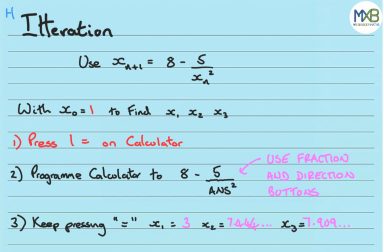 H
MXB
Itteration
Use xₙ₊₁ = 8 - 5/xₙ²
With x₀=1 to Find x₁ x₂ x₃
1) Press 1 = on Calculator
2) Programme Calculator to 8 - 5/ANS²
USE FRACTION
AND DIRECTION
BUTTONS
3) Keep pressing "=" x₁ = 3 x₂= 7.444... x₃= 7.909...